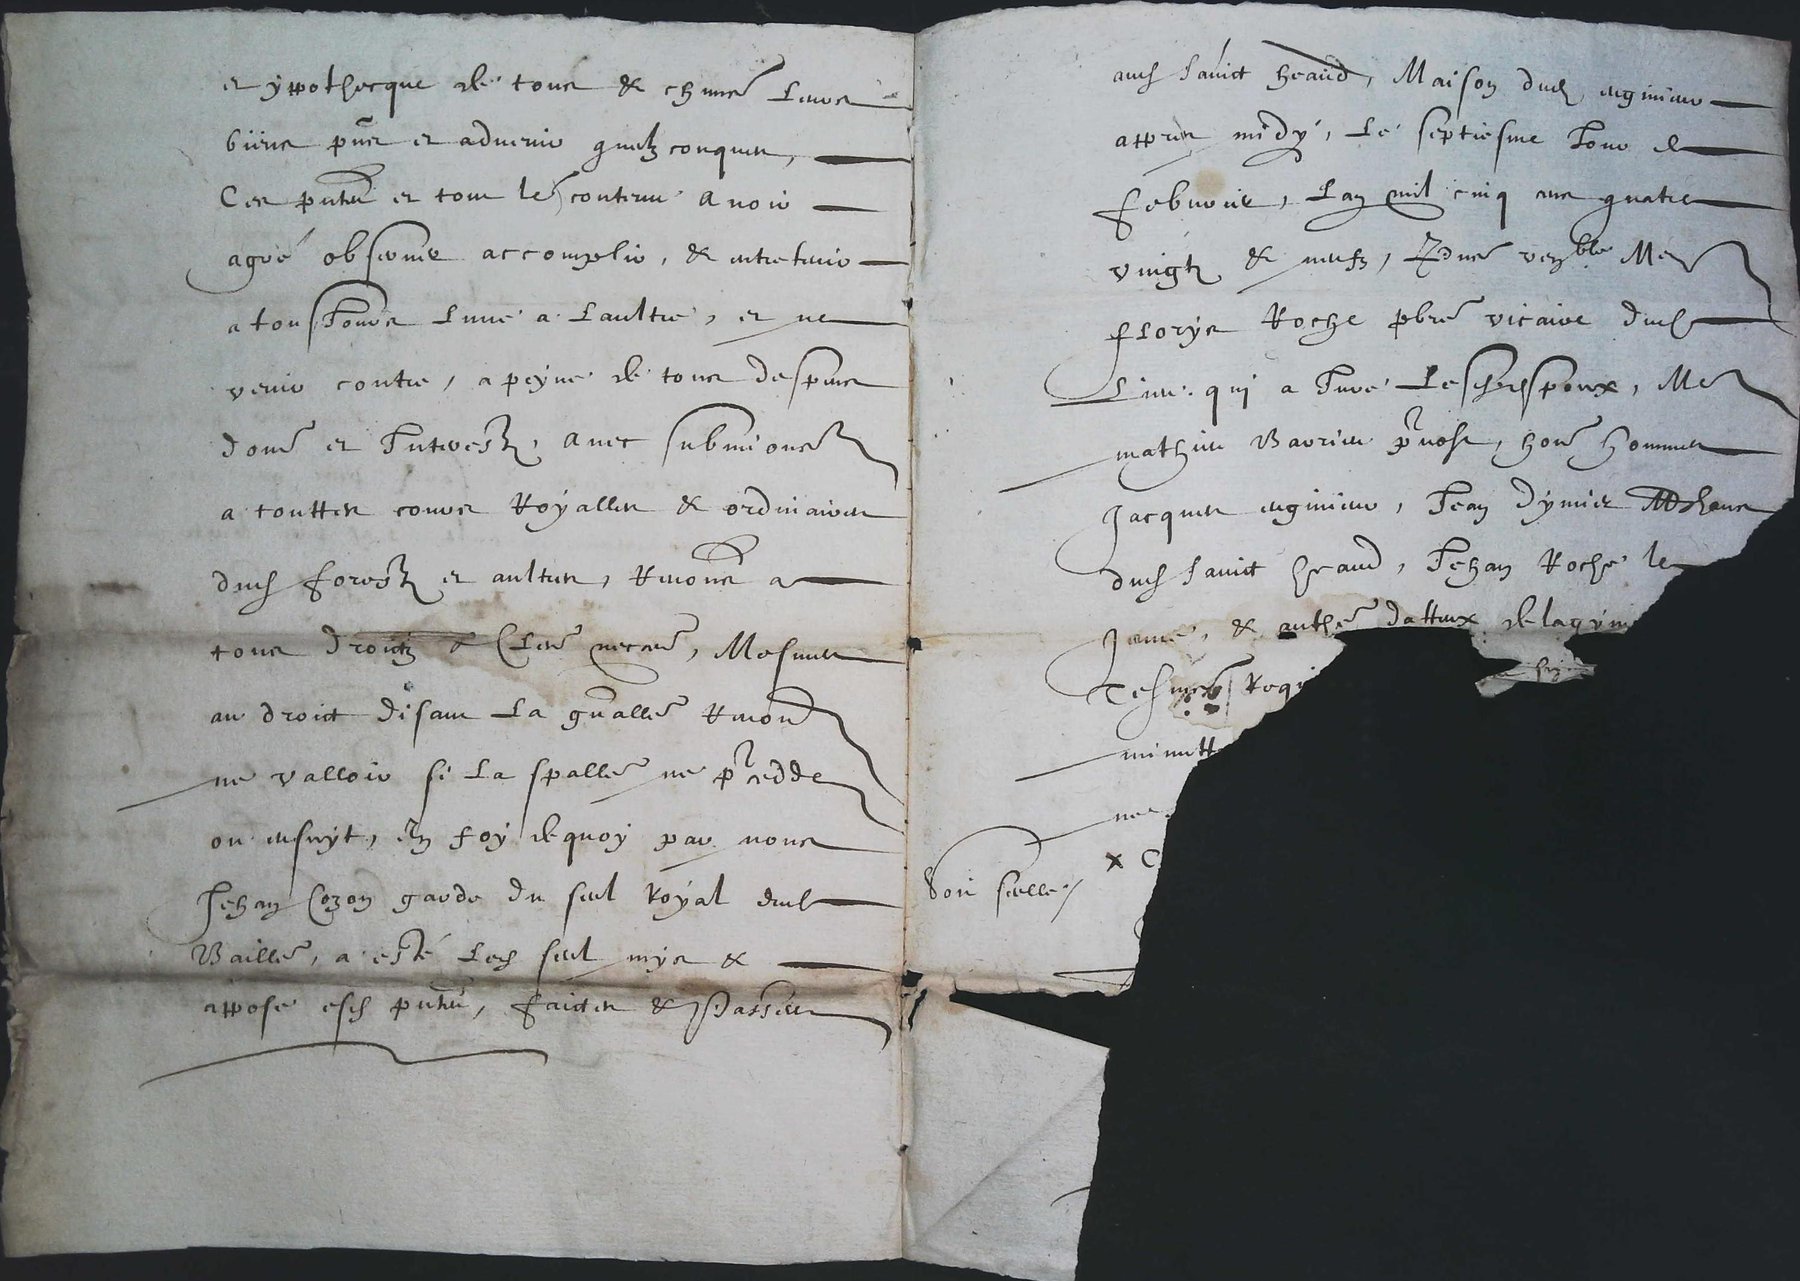 et ypothecque de tous & chũns leurs
biens pñs et advenir quelzconques,
Ces pñtes et tout le contenu avoir
agré observer accomplir, & entretenir
a tousjours l'une a l'aultre, et ne
venir contre, a peyne de tous despens
dom̃ et Interestz, avec submions
a touttes cours Royalles & ordinaires
dud forestz et aultres, Renons a
tous droictz & necres, Mesmes
au droict disant la gñalle Renon
ne valloir si la spalle ne precedde
ou ensuyt, En foy de quoy par nous
Jehan Cozon garde du seel Royal dud
Baille, a esté led seel mys &
appose esd pñtes, faictes & Passees
aud sainct heand, Maison dud
appres midy, le septiesme Jour de
febvrier, l'an mil cinq cens quatre
vingtz & neufz, pñs venble Mre
florys Roche pbre vicaire dud
lieu qui a Juré lesd espoux, Me
mathieu Bavrieu prevost, hon hommes
Jacques Jean dymier
dud sainct heand, Jehan Roche le
Jeune, & anthe dattux
Tesmoings Requi
minutt
ne
x C
Soit seelle